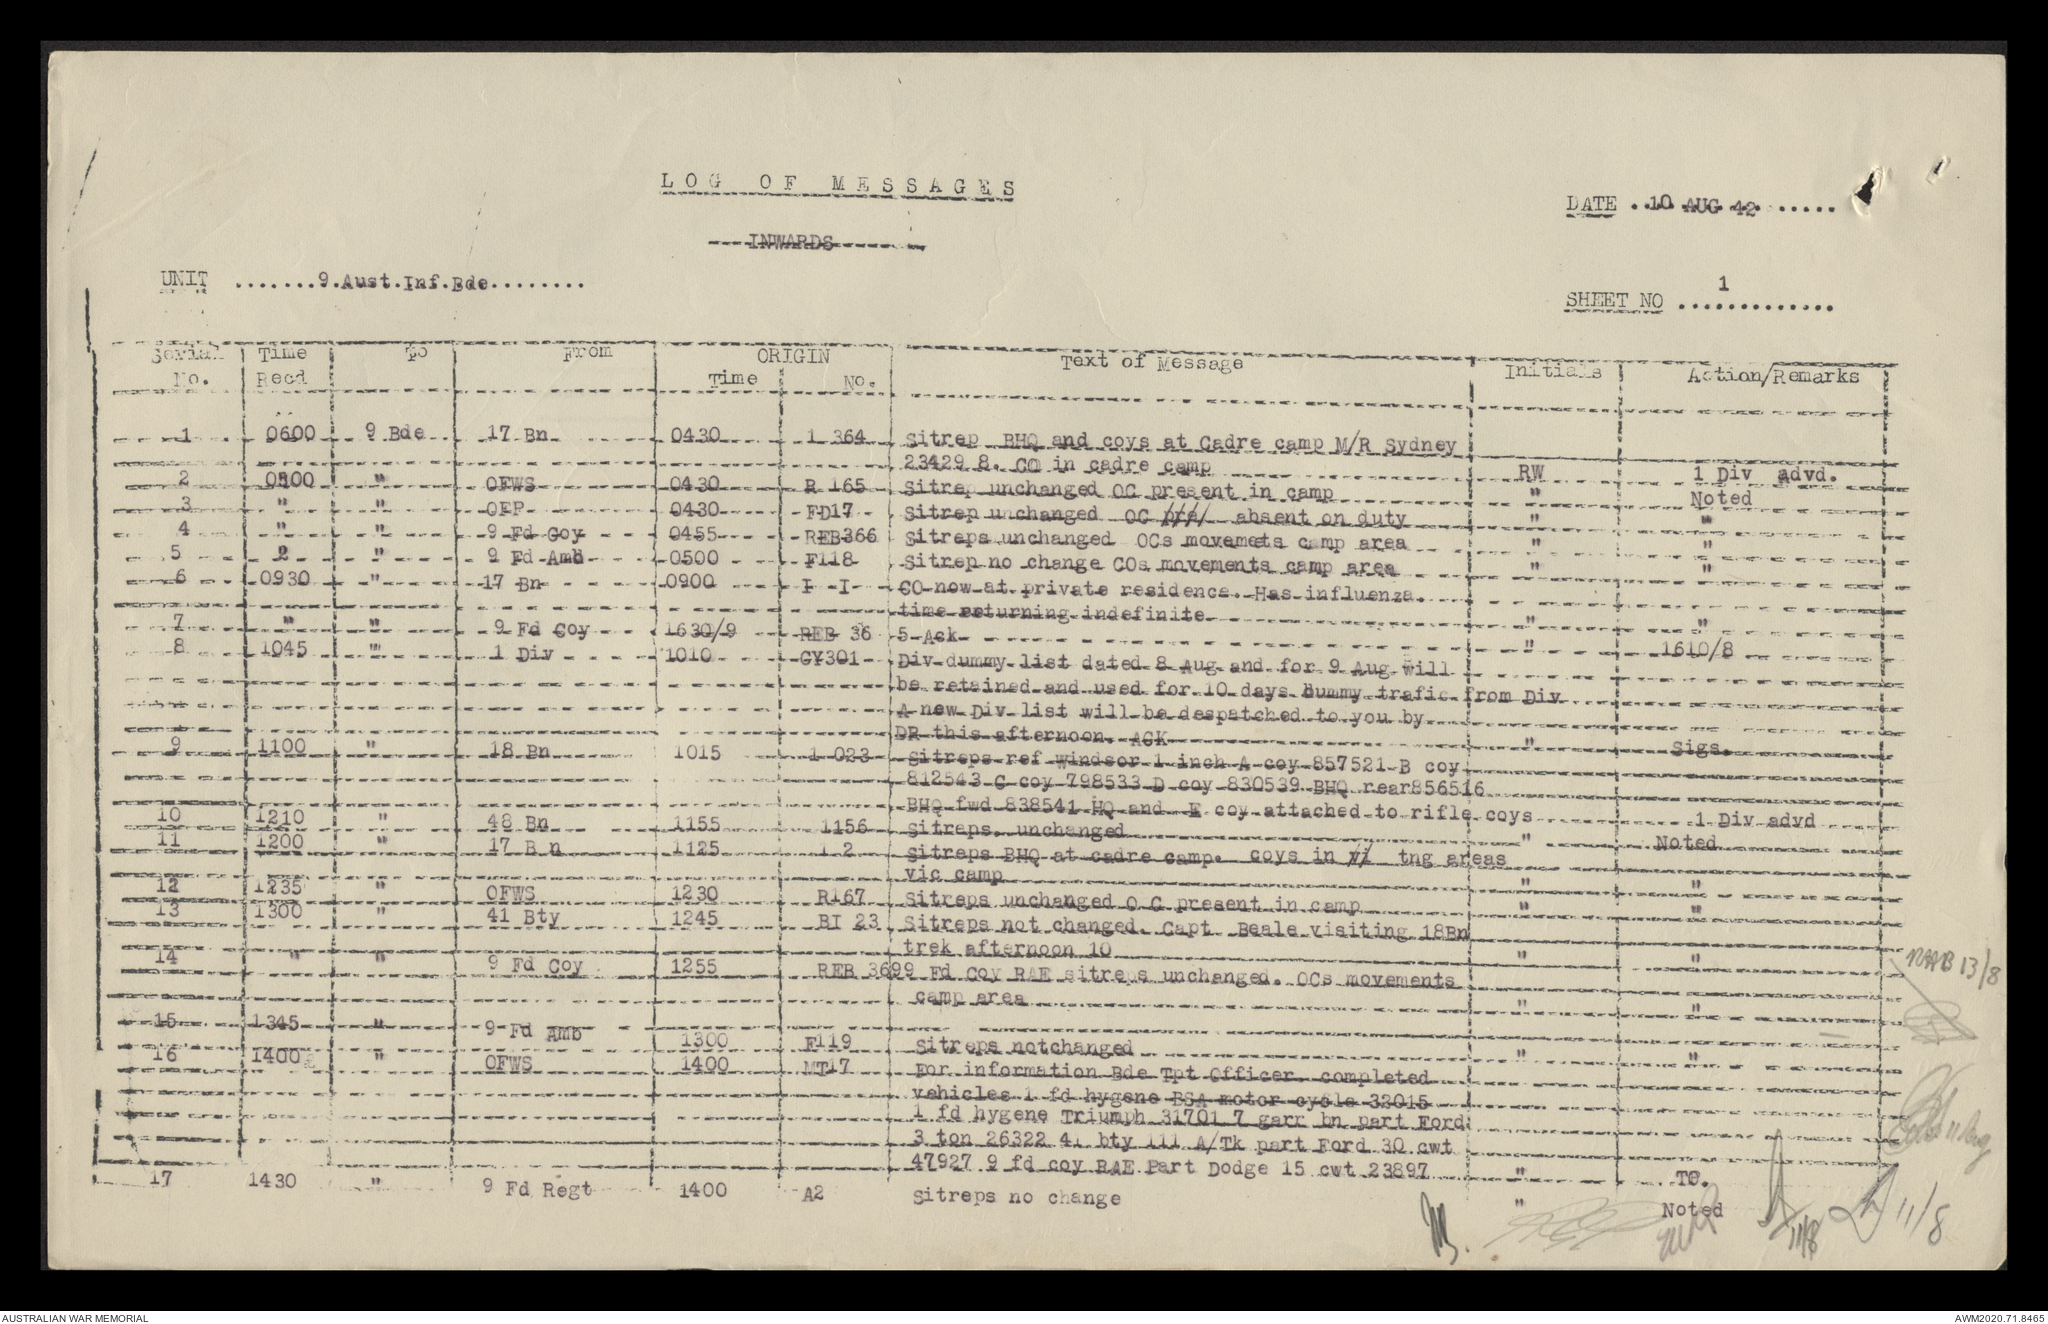 LOG OF MESSAGES
DATE ..10 AUG 42 .....
INWARDS
UNIT .......9.Aust.Inf.Bde........
SHEET NO 1 .............
Serial No. Time Recd To From ORIGIN Time No. Text of Message Initials Action/Remarks
1 0600 9 Bde 17 Bn 0430 1 364 Sitrep BHQ and coys at Cadre camp M/R Sydney
23429 8. CO in cadre camp RW 1 Div advd.
2 0500 " OFWS 0430 R 165 Sitrep unchanged OC present in camp " Noted
3 " " OFP 0430 FD17 Sitrep unchanged OC absent on duty " "
4 " " 9 Fd Coy 0455 REB366 Sitreps unchanged OCs movemets camp area " "
5 2 " 9 Fd Amb 0500 F118 Sitrep no change COs movements camp area " "
6 0930 " 17 Bn 0900 I I CO now at private residence. Has influenza.
time returning indefinite " "
7 " " 9 Fd Coy 1630/9 REB 36 5 Ack " 1610/8
8 1045 " 1 Div 1010 GY301 Div dummy list dated 8 Aug and for 9 Aug will
be retained and used for 10 days dummy trafic from Div
A new Div list will be despatched to you by
DR this afternoon. ACK " Sigs.
9 1100 " 18 Bn 1015 1 023 Sitreps ref windsor 1 inch A coy 857521 B coy
812543 C coy 798533 D coy 830539 BHQ rear856516
BHQ fwd 838541 HQ and E coy attached to rifle coys 1 Div advd
10 1210 " 48 Bn 1155 1156 Sitreps. unchanged " Noted
11 1200 " 17 B n 1125 1 2 Sitreps BHQ at cadre camp. coys in tng areas
vic camp " "
12 1235 " OFWS 1230 R167 Sitreps unchanged O C present in camp " "
13 1300 " 41 Bty 1245 BI 23 Sitreps not changed. Capt Beale visiting 18Bn
trek afternoon 10 " "
14 " " 9 Fd Coy 1255 REB 3699 Fd Coy RAE sitreps unchanged. OCs movements
camp area " "
13/8
15 1345 " 9 Fd Amb 1300 F119 Sitreps notchanged " "
16 1400 " OFWS 1400 MT17 For information Bde Tpt Officer completed
vehicles 1 fd hygene BSA motor cycle 33015
1 fd hygene Triumph 31701 7 garr bn part Ford
3 ton 26322 41 bty 111 A/Tk part Ford 30 cwt
47927 9 fd coy RAE Part Dodge 15 cwt 23897 " TO.
11 Aug
17 1430 " 9 Fd Regt 1400 A2 Sitreps no change " Noted
11/8 11/8
AUSTRALIAN WAR MEMORIAL
AWM2020.71.8465